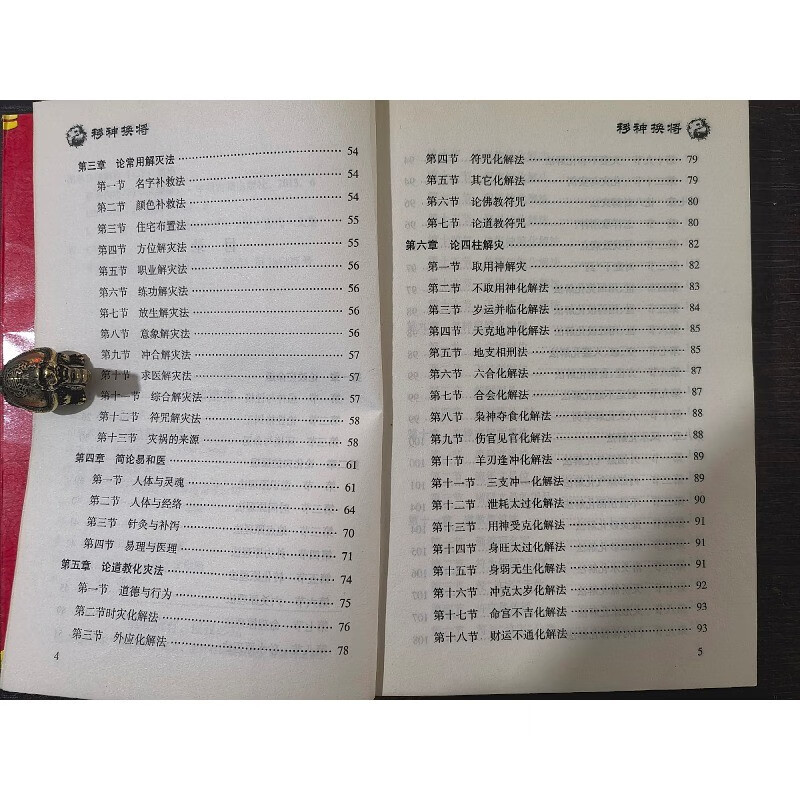 移神换将
第三章 论常用解灾法 54
第一节 名字补救法 54
第二节 颜色补救法 54
第三节 住宅布置法 55
第四节 方位解灾法 55
第五节 职业解灾法 56
第六节 练功解灾法 56
第七节 放生解灾法 56
第八节 意象解灾法 56
第九节 冲合解灾法 57
第十节 求医解灾法 57
第十一节 综合解灾法 57
第十二节 符咒解灾法 58
第十三节 灾祸的来源 58
第四章 简论易和医 61
第一节 人体与灵魂 61
第二节 人体与经络 64
第三节 针灸与补泻 70
第四节 易理与医理 71
第五章 论道教化灾法 74
第一节 道德与行为 75
第二节时灾化解法 76
第三节 外应化解法 78
4
移神换将
第四节 符咒化解法 79
第五节 其它化解法 79
第六节 论佛教符咒 80
第七节 论道教符咒 80
第六章 论四柱解灾 82
第一节 取用神解灾 82
第二节 不取用神化解法 83
第三节 岁运并临化解法 84
第四节 天克地冲化解法 85
第五节 地支相刑法 85
第六节 六合化解法 87
第七节 合会化解法 87
第八节 枭神夺食化解法 88
第九节 伤官见官化解法 88
第十节 羊刃逢冲化解法 89
第十一节 三支冲一化解法 89
第十二节 泄耗太过化解法 90
第十三节 用神受克化解法 91
第十四节 身旺太过化解法 91
第十五节 身弱无生化解法 91
第十六节 冲克太岁化解法 92
第十七节 命宫不吉化解法 93
第十八节 财运不通化解法 93
5